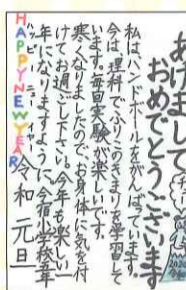 あけまして
おめでとうございます
私はハンドボールをがんばっています。
今は、理科でふりこのきまりを学習して
います。毎回実験が楽しいです。
寒くなりましたので、お身体に気を付
けてお過ごし下さい。今年も楽しい一
年になりますように。今宿小学校五年
HAPPY NEW YEAR
ハッピー ニュー イヤー
令和 元旦